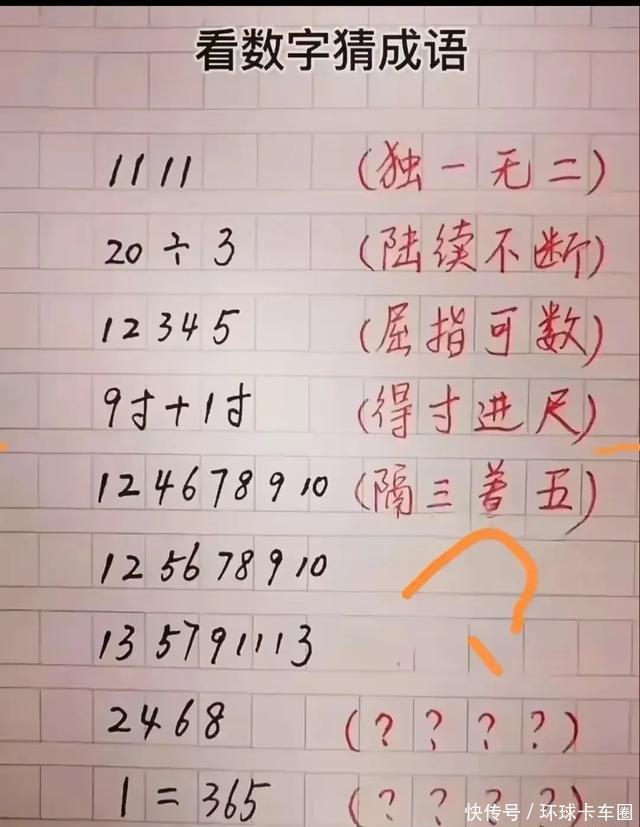 看数字猜成语
1111 (独一无二)
20÷3 (陆续不断)
12345 (屈指可数)
9寸+1寸 (得寸进尺)
124678910 (隔三着五)
125678910
135791113
2468 (????)
1=365 (????)
快传号/环球卡车圈